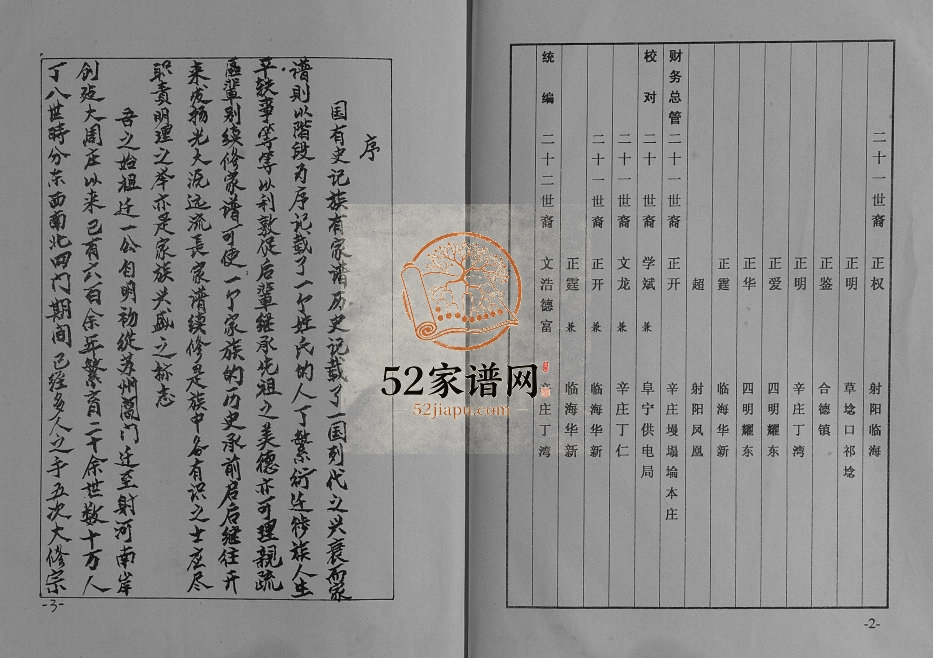 二十一世裔 正权 射阳临海
正明 草埝口祁埝
正鉴 合德镇
正明 辛庄丁湾
正爱 四明耀东
正华 四明耀东
正霆 临海华新
超 射阳凤凰
财务总管 二十一世裔 正开 辛庄墁塌埨本庄
校对 二十世裔 学斌 兼 阜宁供电局
二十一世裔 文龙 兼 辛庄丁仁
二十一世裔 正开 兼 临海华新
正霆 兼 临海华新
统编 二十二世裔 文浩德富 辛庄丁湾
-2-
序
国有史记族有家谱历史记载了一国到代之兴衰而家
谱则以階段为序记载了一个姓氏的人丁繁衍迁徙族人生
平轶事等等以利敦促后辈继承先祖之美德亦可理親疏
區輩别续修家谱可使一个家族的历史承前启后继往开
来发扬光大沅远流長家谱续修是族中各有识之士应尽
职责明理之举亦是家族兴盛之标志
吾之始祖迁一公自明初從苏州阊门迁至射河南岸
创始大周庄以来已有六百余年繁育二十余世数十万人
丁八世時分东西南北四门期间已经多人之手五次大修宗
-3-
52家谱网
52jiapu.com